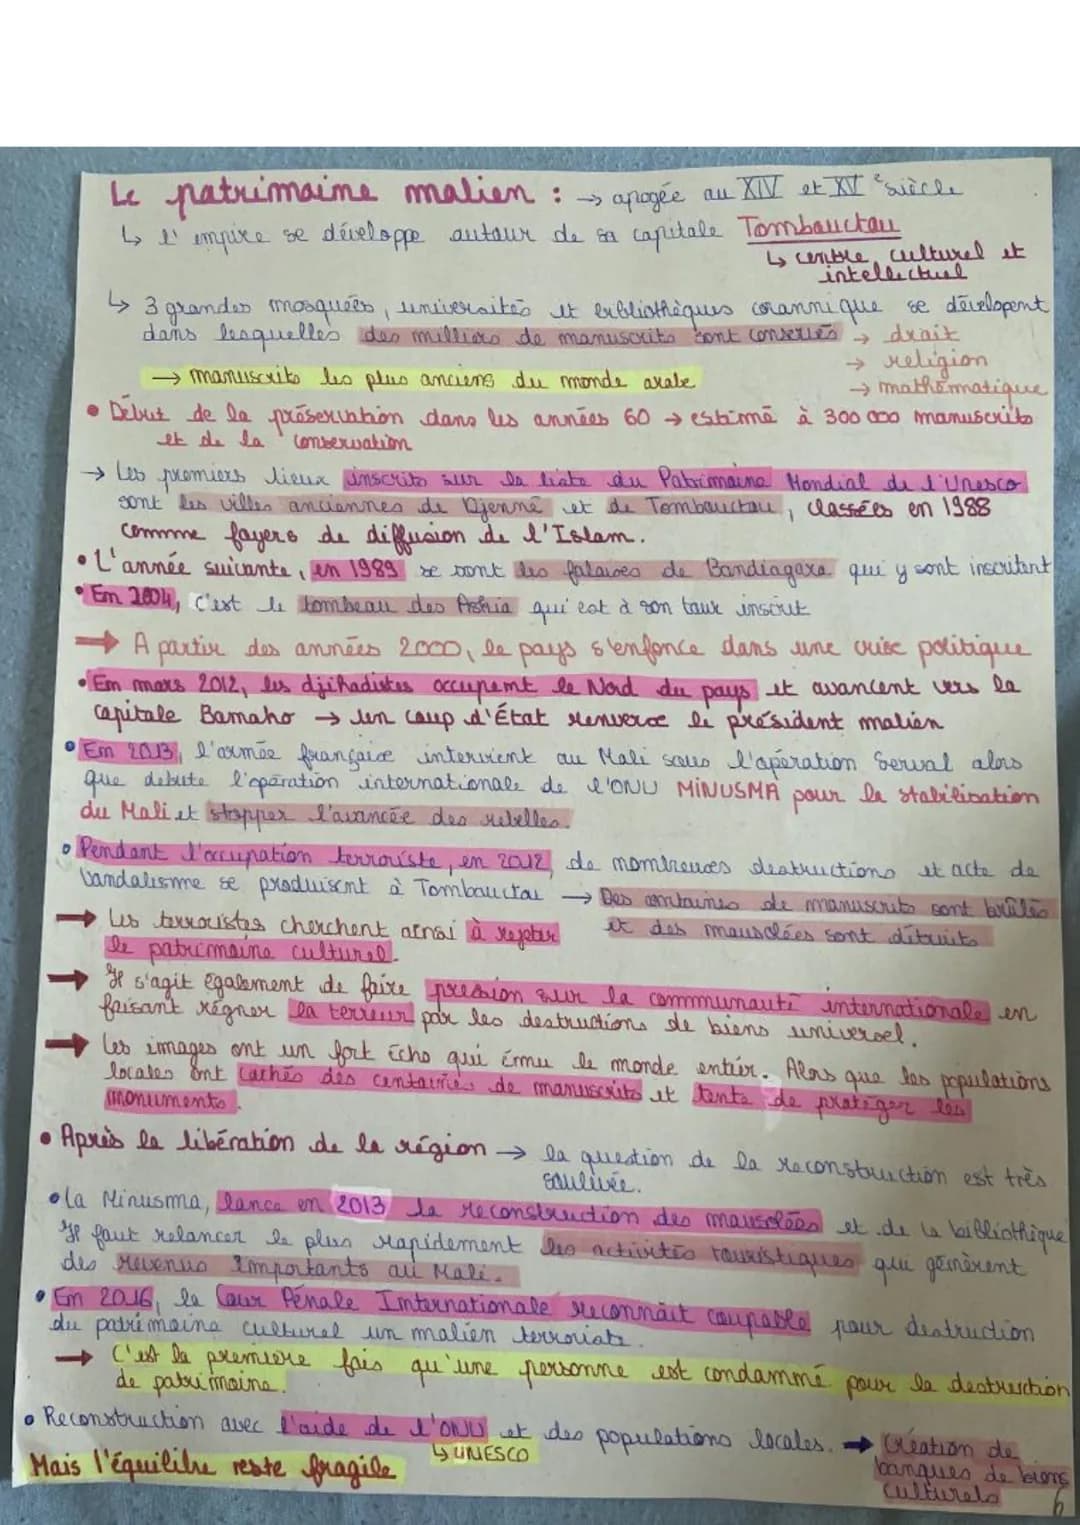 Le patrimoine malien : → apogée au XIV et XV e siècle
↳ l'empire se développe autour de sa capitale Tombouctou
↳ centre culturel et
intellectuel
↳ 3 grandes mosquées, universités et bibliothèques corannique se dévelopent
dans lesquelles des milliers de manuscrits sont conservés → droit
→ religion
→ manuscrits les plus anciens du monde arabe
→ mathématique
• Début de la préservation dans les années 60 → estimé à 300 000 manuscrits
et de la conservation
→ Les premiers lieux inscrits sur la liste du Patrimoine Mondial de l'Unesco
sont les villes anciennes de Djenné et de Tombouctou, classées en 1988
comme foyers de diffusion de l'Islam.
• L'année suivante, en 1989 se sont les falaises de Bandiagara qui y sont inscritent
• En 2004, c'est le tombeau des Askia qui est à son tour inscrit
→ A partir des années 2000, le pays s'enfonce dans une crise politique
• En mars 2012, les djihadistes occupent le Nord du pays et avancent vers la
capitale Bamako → un coup d'État renverse le président malien
• En 2013, l'armée française intervient au Mali sous l'opération Serval alors
que debute l'opération internationale de l'ONU MINUSMA pour la stabilisation
du Mali et stopper l'avancée des rebelles.
• Pendant l'occupation terroriste, en 2012, de nombreuses destructions et acte de
vandalisme se produisent à Tombouctou → Des centaines de manuscrits sont brûlés
et des mausolées sont détruits
→ Les terroristes cherchent ainsi à rejeter
le patrimoine culturel.
→ Il s'agit également de faire pression sur la communauté internationale en
faisant régner la terreur par les destructions de biens universel.
→ Les images ont un fort écho qui ému le monde entier. Alors que les populations
locales ont cachés des centaines de manuscrits et tente de protéger les
monuments.
• Après la libération de la région → la question de la reconstruction est très
soulivée.
• La Minusma, lance en 2013 la reconstruction des mausolées et de la bibliothèque
Il faut relancer le plus rapidement les activités touristiques qui génèrent
des revenus importants au Mali.
• En 2016, la Cour Pénale Internationale reconnait coupable pour destruction
du patrimoine culturel un malien terroriste.
→ C'est la première fois qu'une personne est condammé pour la destruction
de patrimoine.
• Reconstruction avec l'aide de l'ONU et des populations locales. → Création de
↳ UNESCO
banques de biens
culturels
Mais l'équilibre reste fragile
6